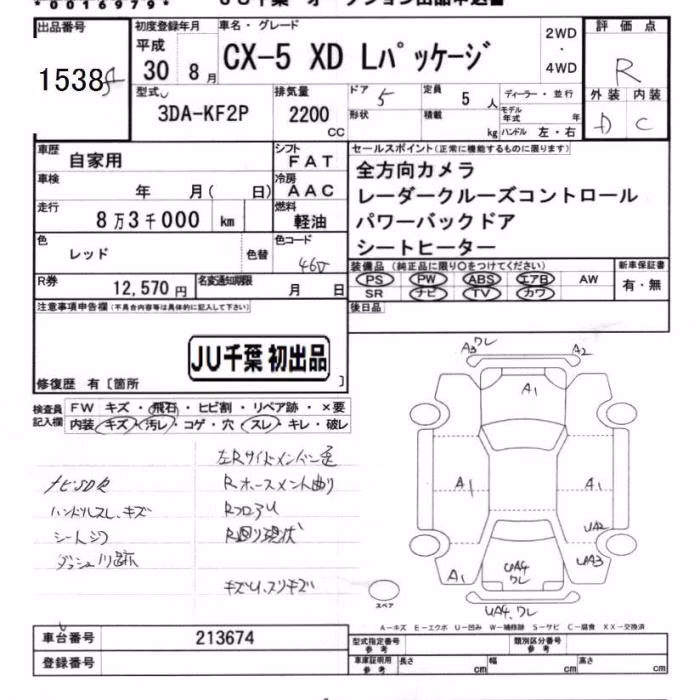 *0016979*
出品番号
15385
初度登録年月
平成
30 8月
車名・グレード
CX-5 XD Lパッケージ
2WD
・
4WD
評価点
R
外装 内装
D C
型式
3DA-KF2P
排気量
2200
CC
ドア
5
定員
5人
形状
積載
kg
ディーラー・並行
モデル年式 年
ハンドル 左・右
車歴
自家用
シフト
FAT
車検
年 月( 日)
冷房
AAC
走行
8万3千000 km
燃料
軽油
色
レッド
色替
色コード
46V
R券
12,570円
名変通知期限
月 日
セールスポイント(正常に機能するものに限ります)
全方向カメラ
レーダークルーズコントロール
パワーバックドア
シートヒーター
装備品(純正品に限り○をつけてください)
PS PW ABS エアB AW
SR ナビ TV カワ
新車保証書
有・無
後日品
注意事項申告欄(不具合内容等は具体的に記入して下さい)
JU千葉 初出品
修復歴 有〔箇所 〕
検査員記入欄
FW キズ・飛石・ヒビ割・リペア跡・×要
内装 キズ・汚レ・コゲ・穴・スレ・キレ・破レ
左Rサイドメンバー歪
ナビSD欠
Rホースメント曲り
ハンドルスレ、キズ
RフロアU
シートシワ
R廻り現状
キズU、スリキズ
A3 ワレ
A2
A1
A1
A1
UA2
UA3
A1
UA4
ワレ
UA4、ワレ
スペア
A－キズ E－エクボ U－凹み W－補修跡 S－サビ C－腐食 XX－交換済
車台番号
213674
登録番号
型式指定番号
参考
類別区分番号
参考
車庫証明用
参考
長さ cm
幅 cm
高さ cm